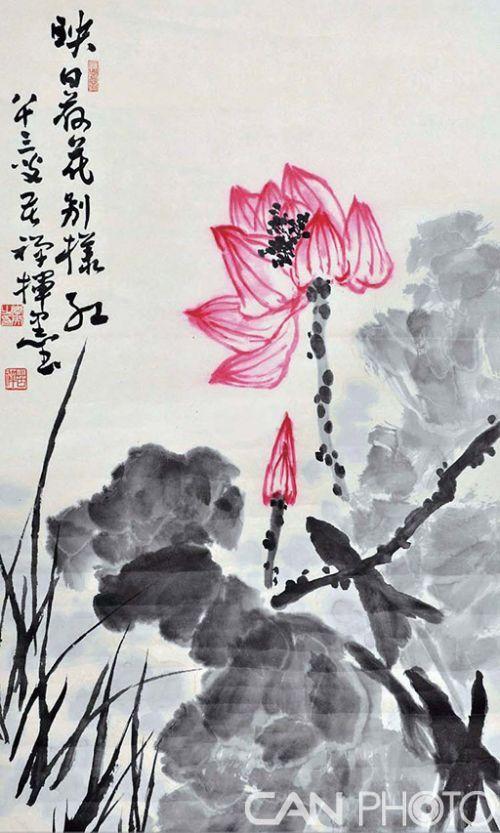 映日荷花别樣红
八十三叟 禅揮墨
CANPHOTO